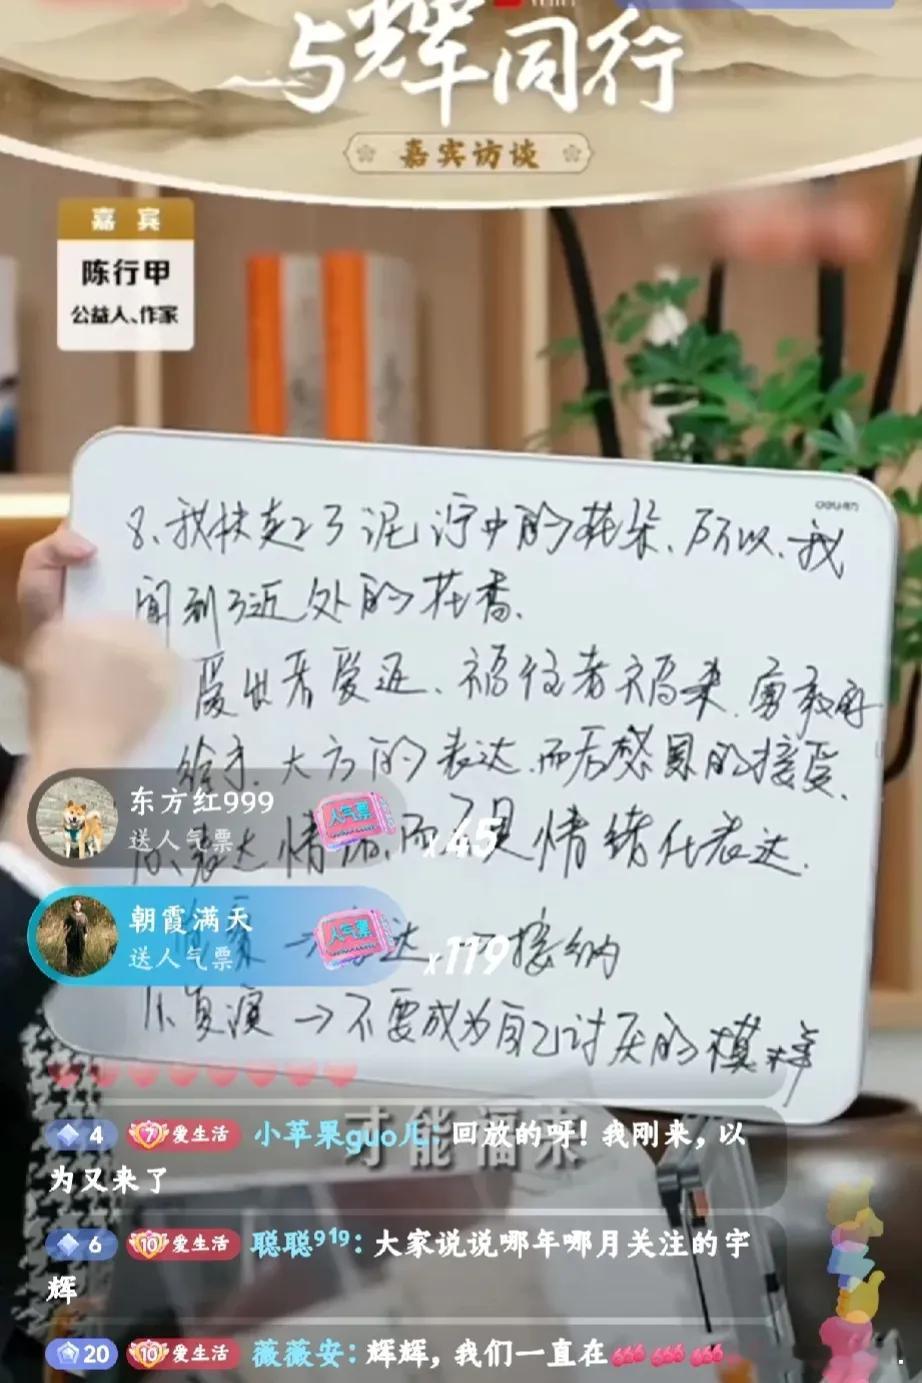 与辉同行
嘉宾访谈
嘉宾
陈行甲
公益人、作家
deli
8、我扶起了泥泞中的花朵、所以、我
闻到了近处的花香、
爱出者爱返、福往者福来、勇敢的
给予、大方的表达、而后感恩的接受、
表达情绪、而不是情绪化表达、
→表达→接纳
→不要成为自己讨厌的模样
东方红999
送人气票
人气票
x45
朝霞满天
送人气票
人气票
x119
才能福来
4 7 爱生活 小苹果guo儿：回放的呀！我刚来，以
为又来了
6 10 爱生活 聪聪919：大家说说哪年哪月关注的宇
辉
20 10 爱生活 薇薇安：辉辉，我们一直在